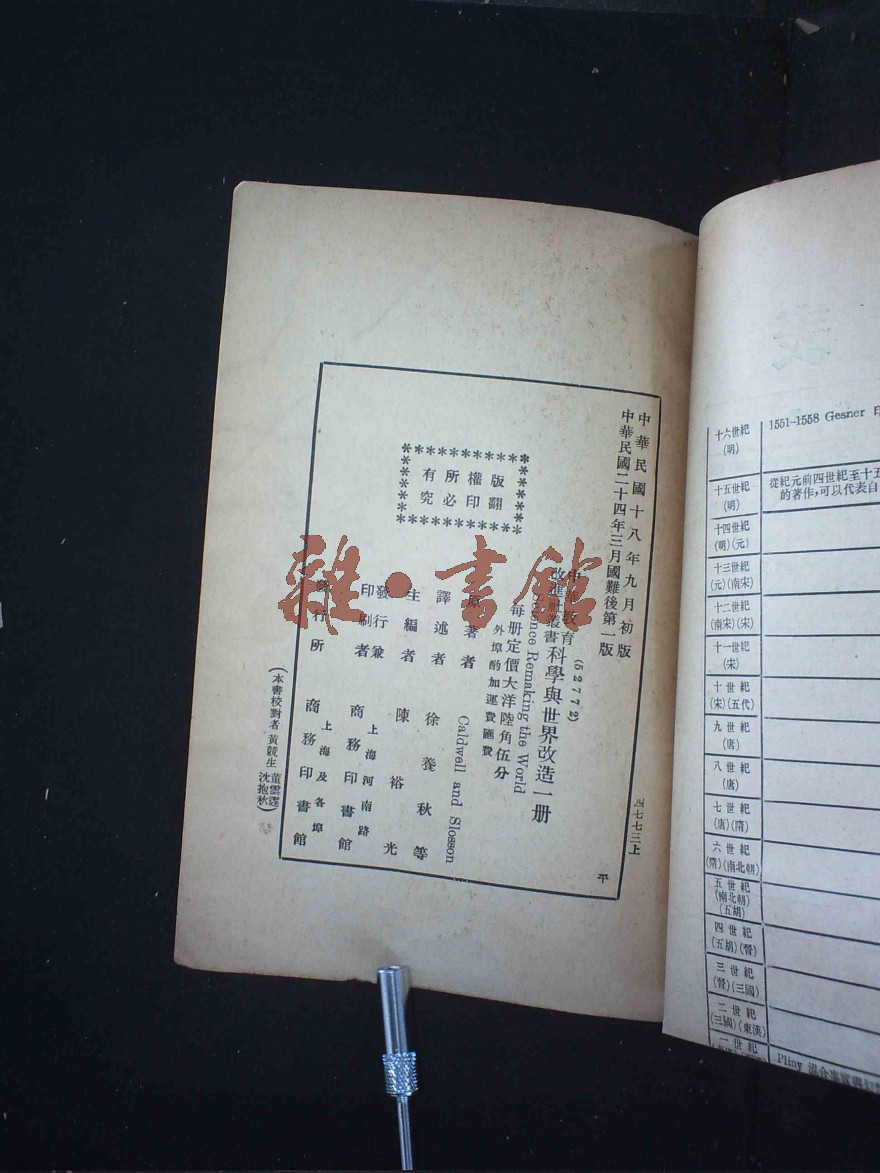 中華民國十八年九月初版
中華民國二十四年三月國難後第一版
四七七三上
(52772)
改進社叢書
科學與世界改造一册
Science Remaking the World
每册定價大洋陸角伍分
外埠酌加運費匯費
版權所有
翻印必究
原著者 Caldwell and Slosson
譯述者 徐養秋等
主編者 陳裕光
發行兼
印刷者
上海河南路
商務印書館
發行所
上海及各埠
商務印書館
(本書校對者
黃競生
沈抱秋
平
雜·書館
1551-1558 Gesner
從紀元前四世紀至十五
的著作,可以代表自
十六世紀
(明)
十五世紀
(明)
十四世紀
(明)(元)
十三世紀
(元)(南宋)
十二世紀
(南宋)(宋)
十一世紀
(宋)
十世紀
(宋)(五代)
九世紀
(唐)
八世紀
(唐)
七世紀
(唐)(隋)
六世紀
(隋)(南北朝)
五世紀
(南北朝)
(五胡)
四世紀
(五胡)(晉)
三世紀
(晉)(三國)
二世紀
(三國)(東漢)
一世紀
Pliny